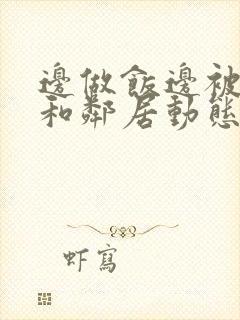 邊做飯邊被
和鄰居動態
虾寫